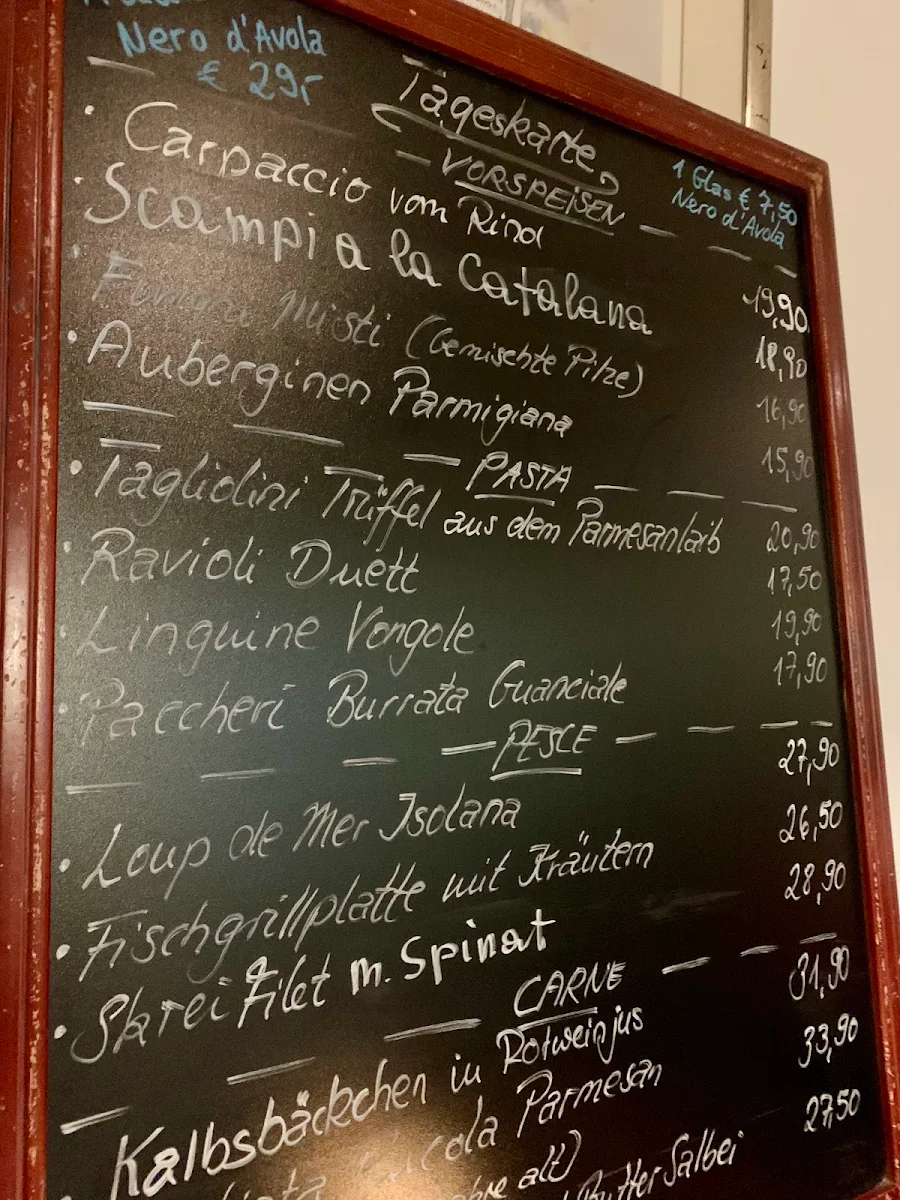 Nero d'Avola
€ 29,-
Tageskarte
1 Glas € 7,50
Nero d'Avola
- VORSPEISEN -
· Carpaccio vom Rind 19,90
· Scampi a la Catalana 18,90
Misti (Gemischte Pilze) 16,90
· Auberginen Parmigiana 15,90
PASTA
· Tagliolini Trüffel aus dem Parmesanlaib 20,90
· Ravioli Duett 17,50
· Linguine Vongole 19,90
· Paccheri Burrata Guanciale 17,90
PESCE
· Loup de Mer Isolana 27,90
· Fischgrillplatte mit Kräutern 26,50
· Skrei Filet m. Spinat 28,90
CARNE
Kalbsbäckchen in Rotweinjus 31,90
Parmesan 33,90
alt)
Butter Salbei 27,50